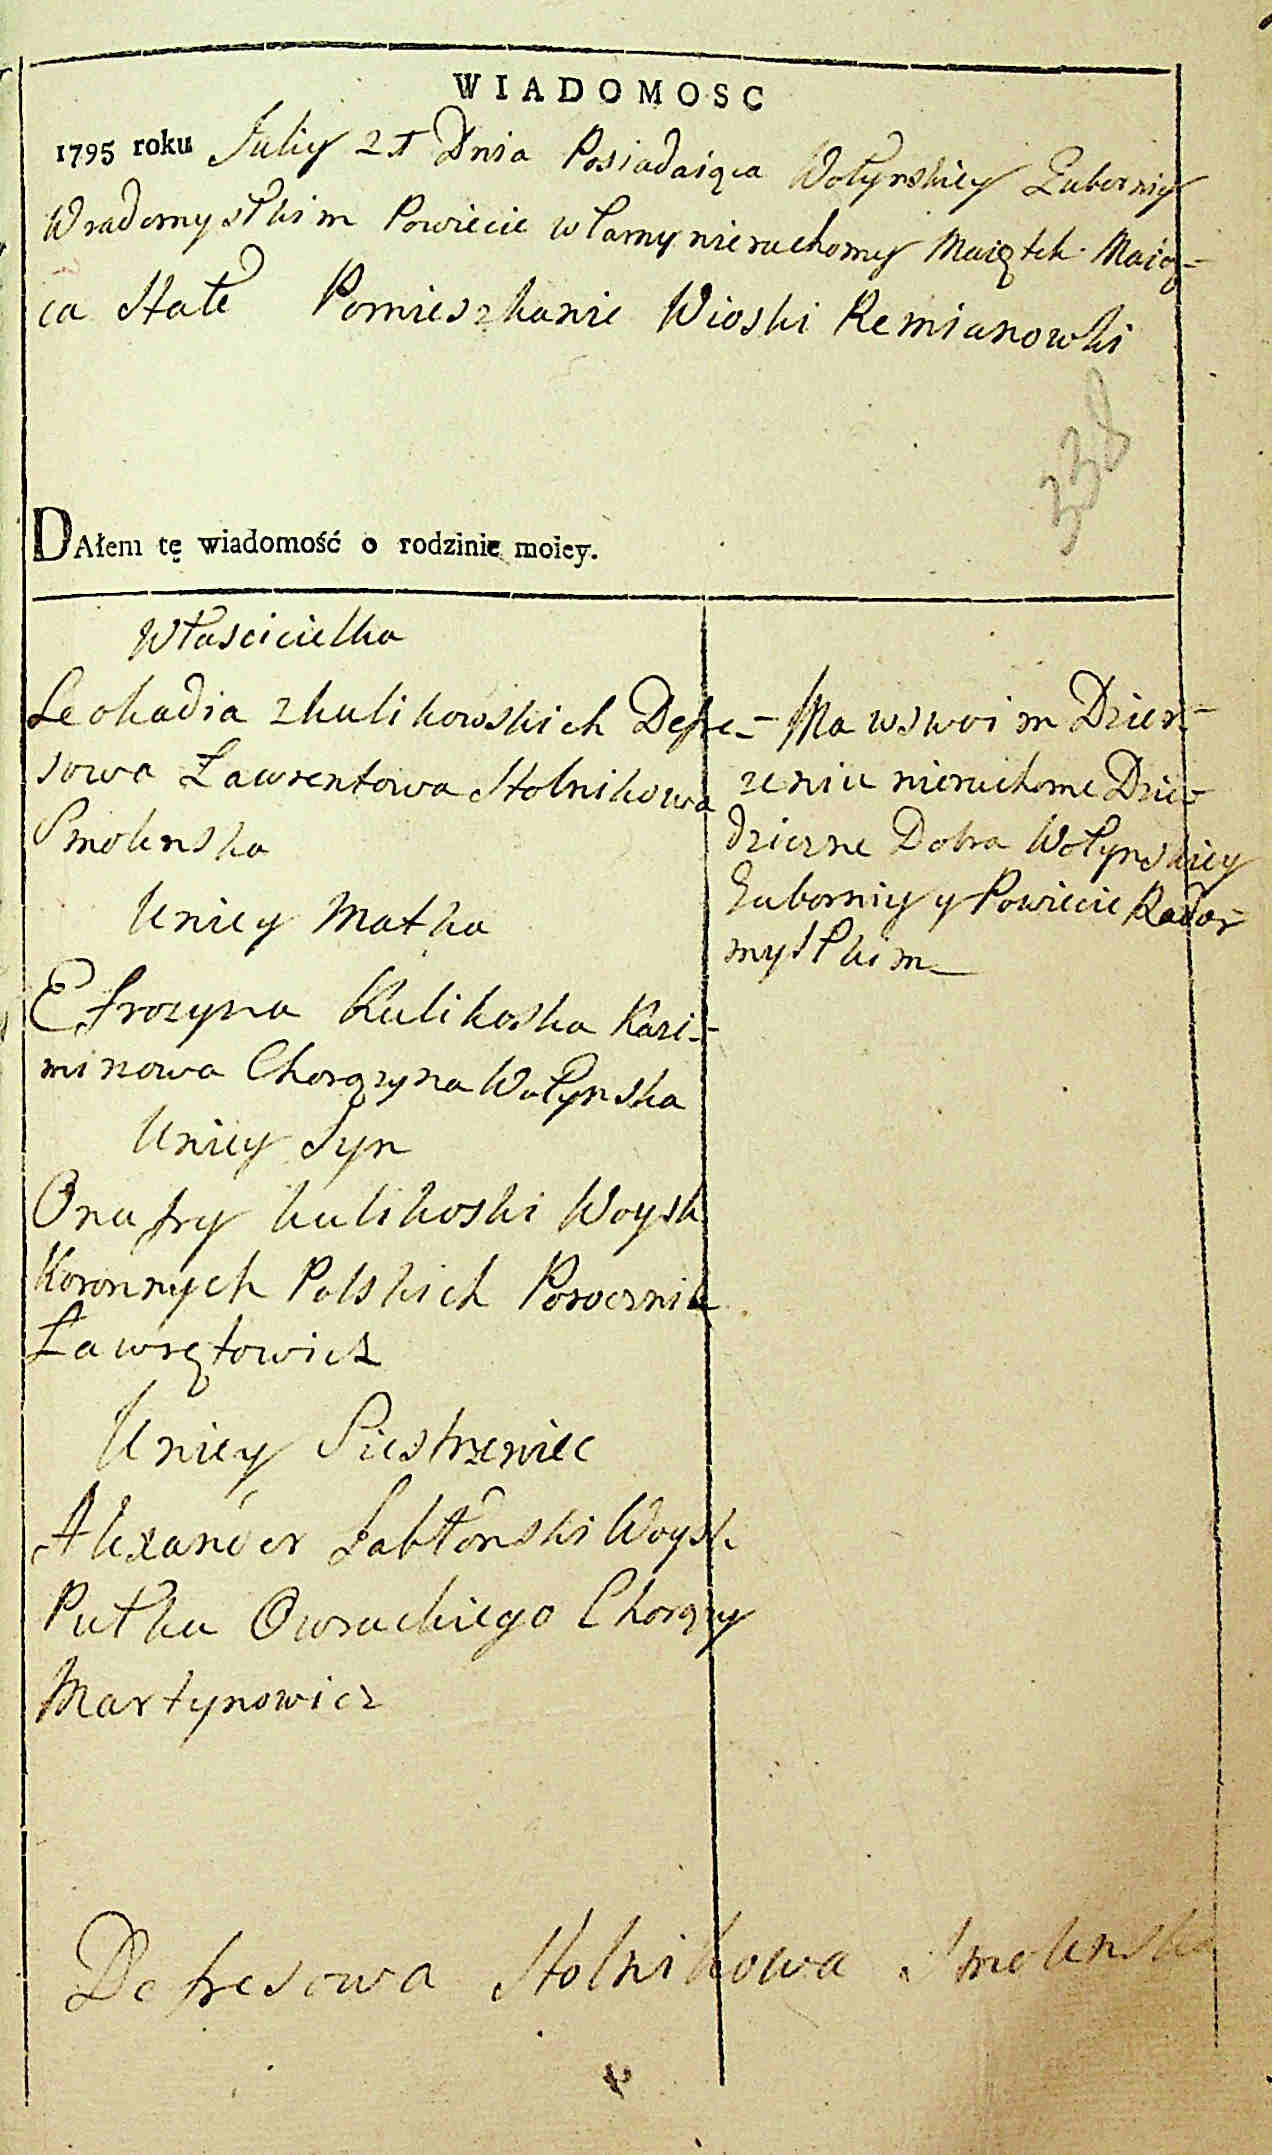 WIADOMOSC
1795 roku Julij 21 Dnia Posiadaiąca Wołynskiey Guberniy
Wradomyslkim Powiecie własny nieruchomy Maiątek Maią-
ca Stałe Pomieszkanie Wioski Remianowki
338
DAłem tę wiadomość o rodzinie moiey.
Włascicielka
Leokadia zkulikowskich Defre-
sowa Ławrentowa Stolnikowa
Smolenska
Uniey Matka
Efrozyna Kulikoska Kazi-
mirowa Chorązyna Wołynska
Uniey Syn
Onufry kulikoski Woysk
Koronnych Polskich Porocznik
Ławrętowicz
Uniey Siestrzeniec
Alexander Zabłonski Woysk
Pułku Owruckiego Chorązy
Martynowicz
Ma wswoim Dzier-
zeniu nieruchome Dzie-
dziczne Dobra Wołynskiey
Guberniy y Powiecie Rado-
myslkim
Defresowa Stolnikowa Smolenska